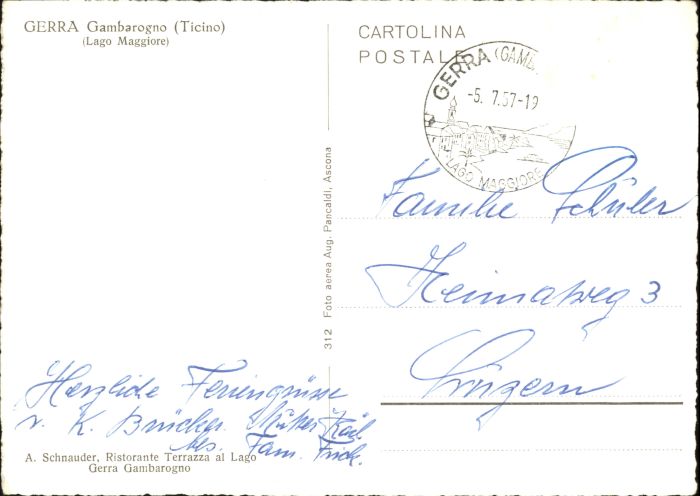 GERRA Gambarogno (Ticino)
(Lago Maggiore)
CARTOLINA
POSTALE
GERRA (GAMB.
-5. 7.57-19
LAGO MAGGIORE
312 Foto aerea Aug. Pancaldi, Ascona
Familie Schüler
Heimatweg 3
Luzern
Herzliche Feriengrüsse
v. K. Brücker.
bes. Fam. Frick.
A. Schnauder, Ristorante Terrazza al Lago
Gerra Gambarogno